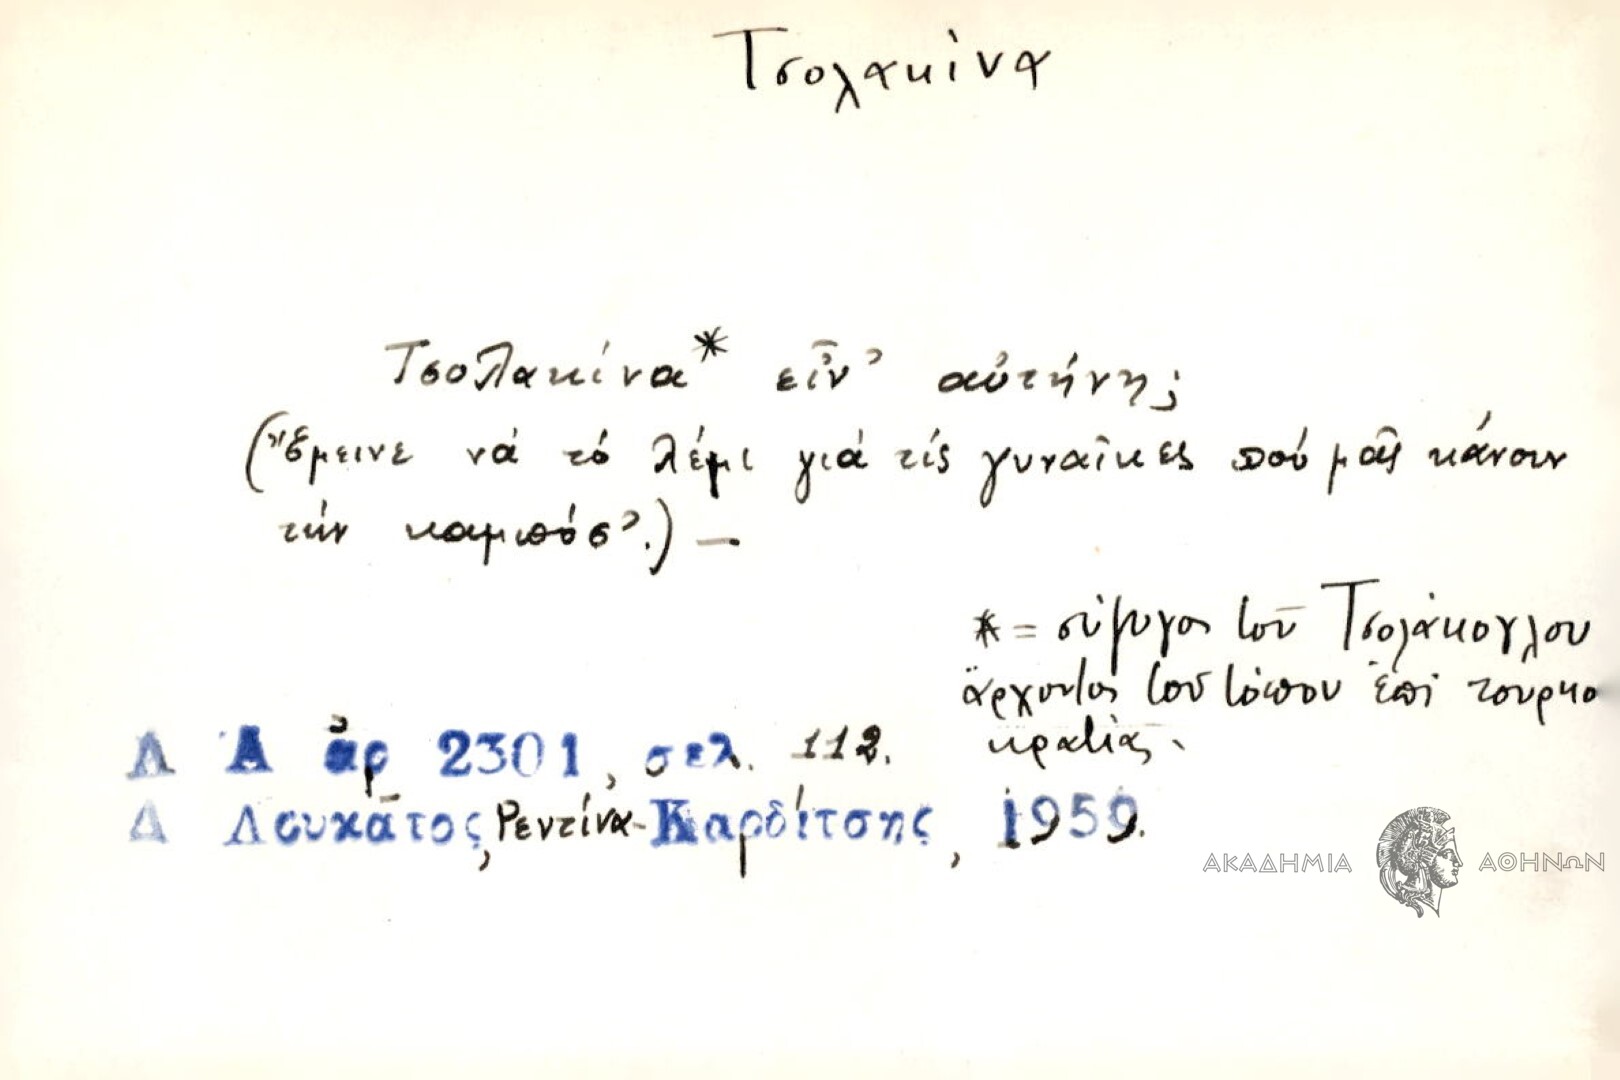 Τσολακίνα
Τσολακίνα* εἶν' αὐτήνη;
(Ἔμεινε νά τό λέμι γιά τίς γυναῖκες πού μᾶς κάνουν
τήν καμπόσ'.) —
* = σύζυγος τοῦ Τσολάκογλου
ἄρχοντος τοῦ τόπου ἐπί τουρκο
κρατίας.
Λ Α ἀρ 2301, σελ. 112.
Δ Λουκᾶτος, Ρεντίνα - Καρδίτσης, 1959.
ΑΚΑΔΗΜΙΑ ΑΘΗΝΩΝ